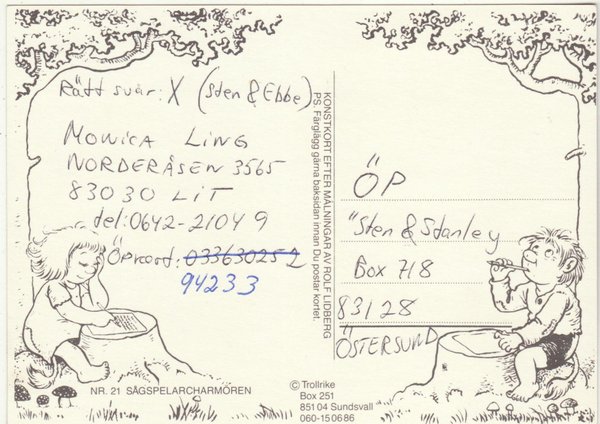 Rätt svar: X (Sten & Ebbe)
MONICA LING
NORDERÅSEN 3565
83030 LIT
tel: 0642-21049
ÖPkort: 033630252
94233
NR. 21 SÅGSPELARCHARMÖREN
KONSTKORT EFTER MÅLNINGAR AV ROLF LIDBERG
PS. Färglägg gärna baksidan innan Du postar kortet.
ÖP
"Sten & Stanley
Box 718
83128
ÖSTERSUND
© Trollrike
Box 251
85104 Sundsvall
060-150686